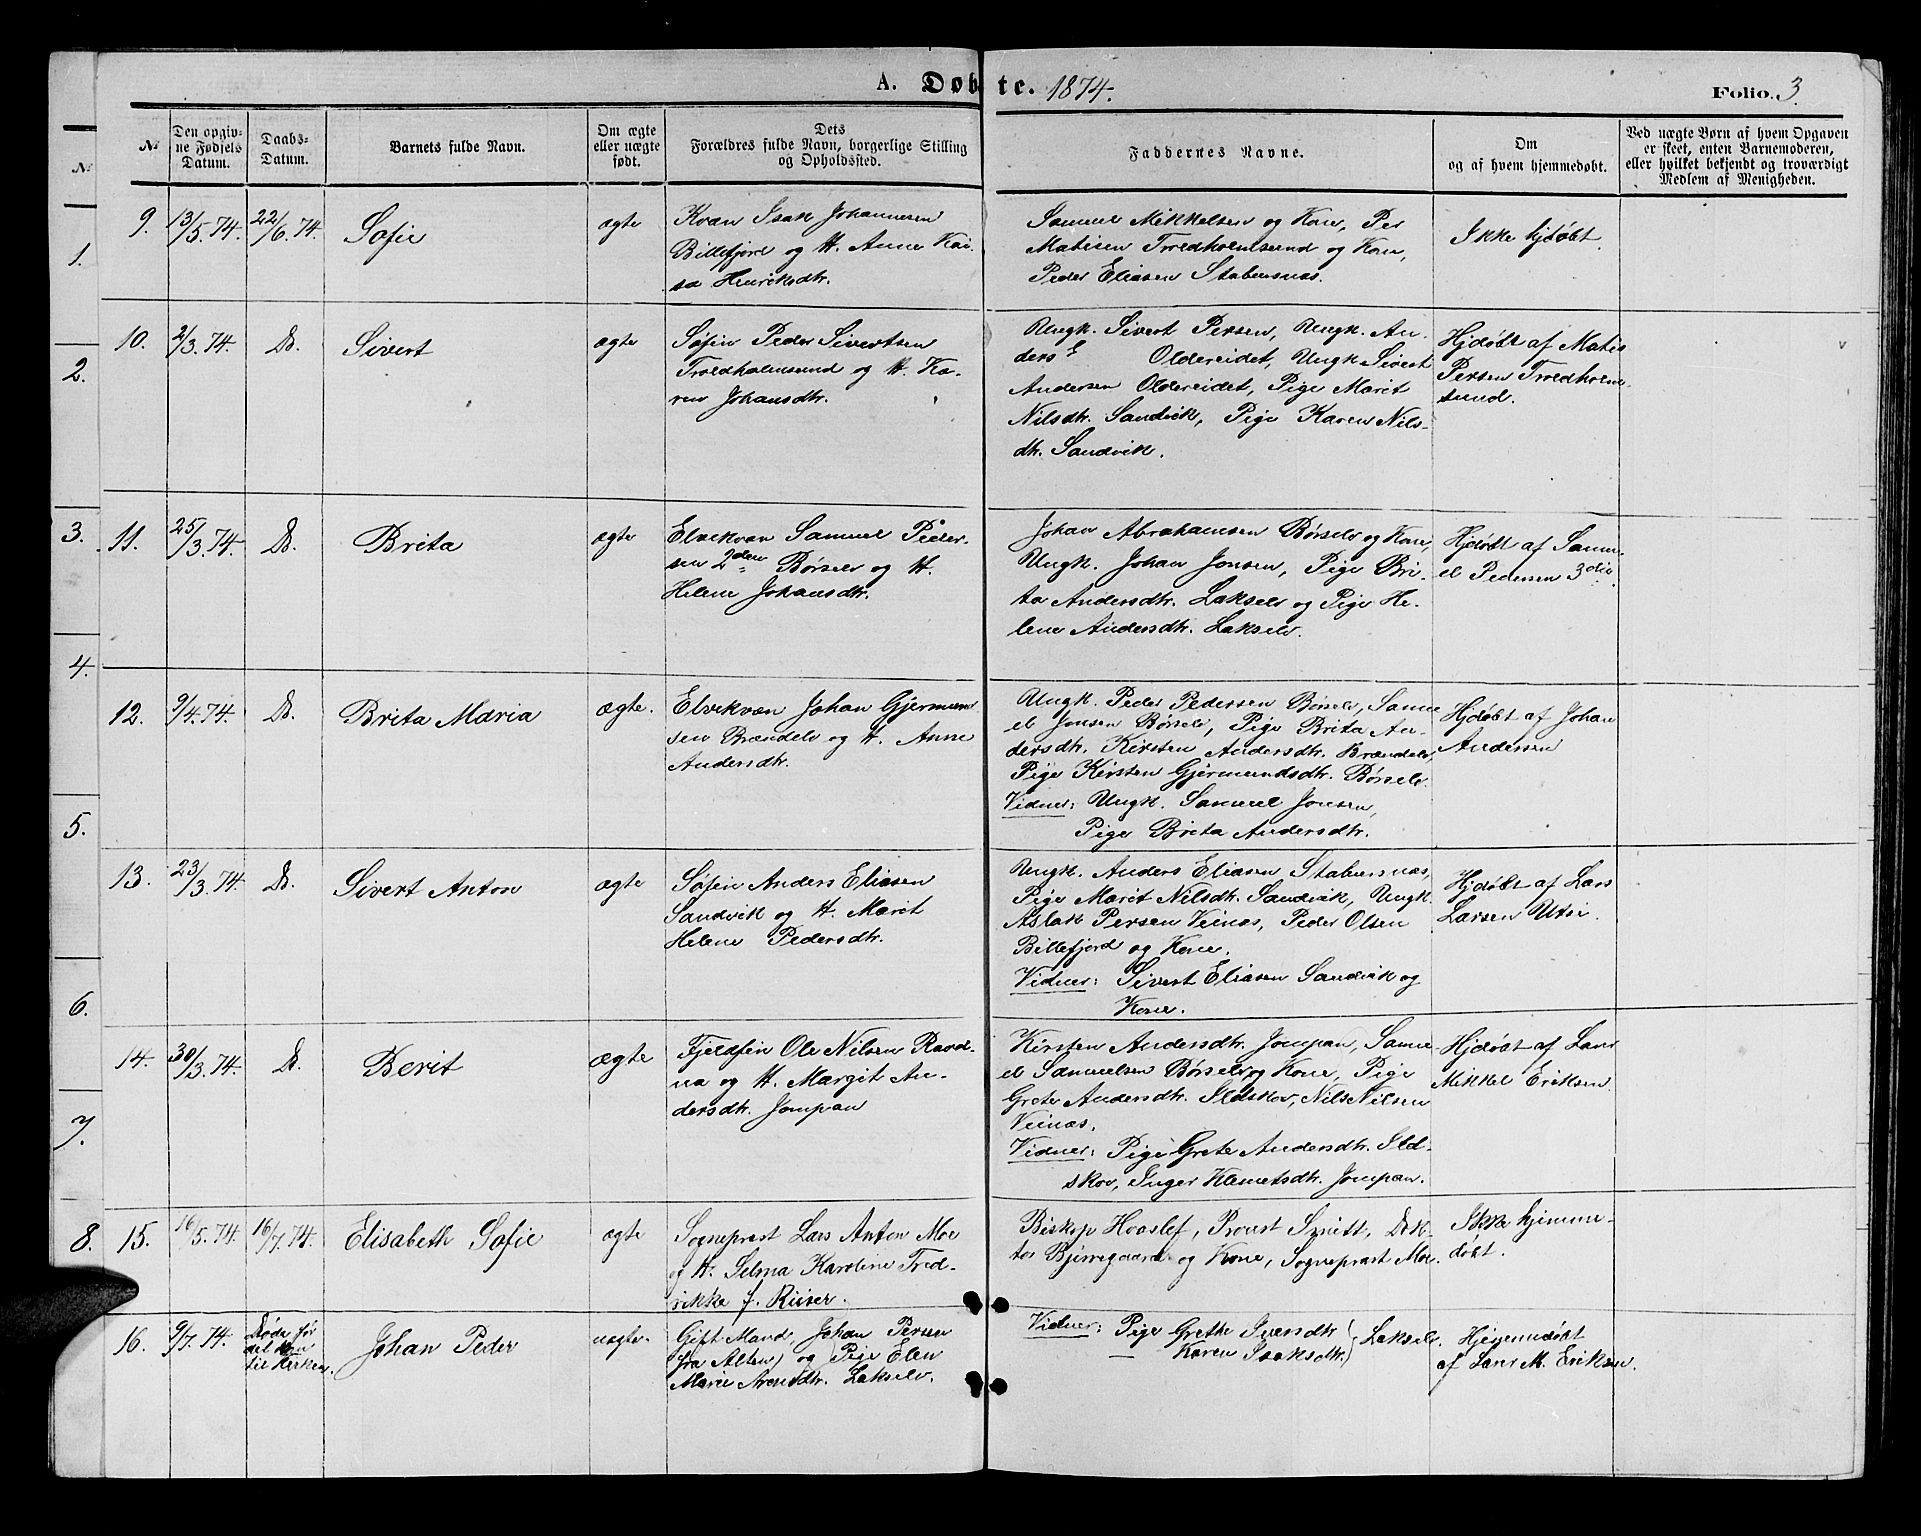 A. Døbte. 1874.
Folio. 3.
№
№
Den opgiv-
ne Fødsels
Datum.
Daabs-
Datum.
Barnets fulde Navn.
Om ægte
eller uægte
født.
Dets
Forældres fulde Navn, borgerlige Stilling
og Opholdssted.
Faddernes Navne.
Om
og af hvem hjemmedøbt.
Ved uægte Børn af hvem Opgaven
er skeet, enten Barnemoderen,
eller hvilket bekjendt og troværdigt
Medlem af Menigheden.
1.
2.
3.
4.
5.
6.
7.
8.
9. 13/5.74. 22/6.74. Sofie ægte
Kvæn Isak Johannesen
Billefjord og H. Anne Kai-
sa Henriksdtr.
Samuel Mikkelsen og Kone, Per
Matisen Troldholmsund og Kone,
Peder Eliasen Stabursnæs.
Ikke hjdøbt.
10. 2/3.74. D. Sivert ægte
Søfin Peder Sivertsen
Troldholmsund og H. Ka-
ren Johansdtr.
Ungk. Sivert Persen, Ungk. An-
ders E Oldereidet, Ungk Sivert
Andersen Oldereidet, Pige Marit
Nilsdtr. Sandvik, Pige Karen Nils-
dtr. Sandvik.
Hjdøbt af Matis
Persen Troldholm-
sund.
11. 25/3.74. D. Brita ægte
Elvekvæn Samuel Peder-
sen 2den Børselv og H.
Helene Johansdtr.
Johan Abrahamsen Børselv og Kone,
Ungk. Johan Jonsen, Pige Bri-
ta Andersdtr. Lakselv og Pige He-
lene Andersdtr. Lakselv.
Hjdøbt af Samu-
el Pedersen 3die.
12. 9/4.74. D. Brita Maria ægte.
Elvekvæn Johan Gjermund
sen Brændelv og H. Anne
Andersdtr.
Ungk. Peder Pedersen Børselv, Samu
el Jonsen Børselv, Pige Brita An-
dersdtr. Kirsten Andersdtr. Brændelv,
Pige Kirsten Gjermundsdtr. Børselv.
Vidner: Ungk. Samuel Jonsen,
Pige Brita Andersdtr.
Hjdøbt af Johan
Andersen
13. 23/3.74. D. Sivert Anton ægte
Søfin Anders Eliasen
Sandvik og H. Marit
Helene Pedersdtr.
Ungk. Anders Eliasen Stabursnæs,
Pige Marit Nilsdtr. Sandvik, Ungk.
Aslak Persen Veinæs, Peder Olsen
Billefjord og Kone.
Vidner: Sivert Eliasen Sandvik og
Kone.
Hjdøbt af Lars
Larsen Utsi.
14. 30/3.74. D. Berit ægte
Fjeldfin Ole Nilsen Ravd-
na og H. Margit An-
dersdtr. Jompan
Kirsten Andersdtr. Jompan, Samu
el Samuelsen Børselv og Kone, Pige
Grete Andersdtr. Ildskov, Nils Nilsen
Veinæs.
Vidner: Pige Grete Andersdtr. Ild-
skov, Inger Klemetsdtr. Jompan.
Hjdøbt af Lars
Mikkel Eriksen.
15. 16/5.74 16/7.74. Elisabeth Sofie ægte
Sogneprest Lars Anton Moe
og H. Selma Karoline Fred-
rikke f. Riiser.
Biskop Hvoslef, Provst Smitt, Dok-
tor Bjerregaard og Kone, Sogneprest Moe.
Ikke hjemme-
døbt.
16. 9/7.74. Døde før
det kom
til Kirken. Johan Peder uægte.
Gift Mand Johan Persen
(fra Alten) og Pige Elen
Marie Arensdtr. Lakselv.
Vidner: Pige Grethe Iversdtr
Karen Isaksdtr. Lakselv.
Hjemmdøbt
af Lars M. Eriksen.